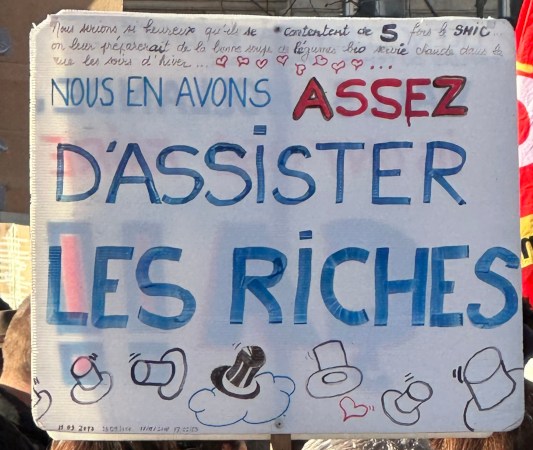 Nous serions si heureux qu'ils se contentent de 5 fois le SMIC...
on leur préparerait de la bonne soupe de légumes bio servie chaude dans la
rue les soirs d'hiver...
NOUS EN AVONS ASSEZ
D'ASSISTER
LES RICHES